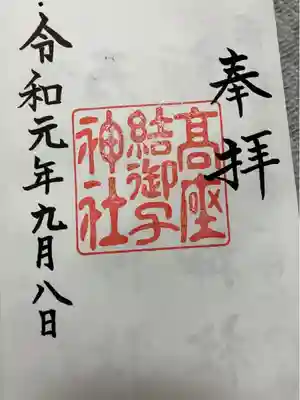 奉拝
髙座
結御子
神社
令和元年九月八日